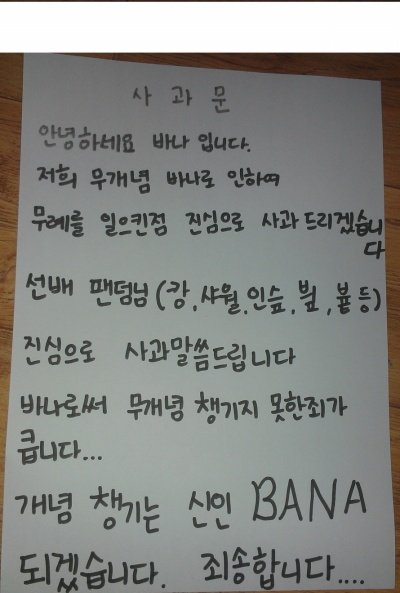 사 과 문
안녕하세요 바나 입니다.
저희 무개념 바나로 인하여
무례를 일으킨점 진심으로 사과드리겠습니
다
선배 팬덤님 (캉,샤월,인슾,뷮,붙 등)
진심으로 사과말씀드립니다
바나로써 무개념 챙기지 못한죄가
큽니다...
개념 챙기는 신인 BANA
되겠습니다. 죄송합니다....